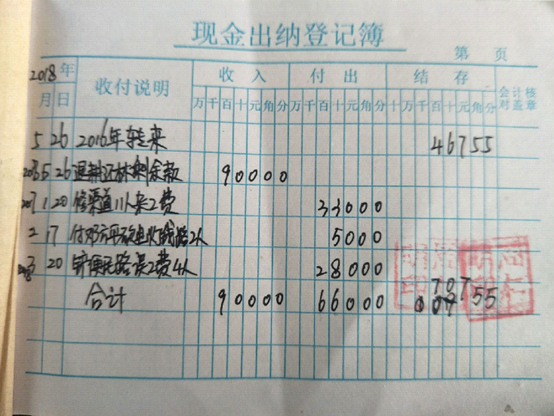 现金出纳登记簿
第 页
2018年 收付说明 收入 付出 结存 会计核对盖章
月 日 万千百十元角分 万千百十元角分 十万千百十元角分
5 26 2016年转来 46755
5 26 退耕还林剩余款 90000
1 20 修渠道11人误工费 33000
2 17 5000
3 20 误工费4人 28000
合计 90000 66000 70755